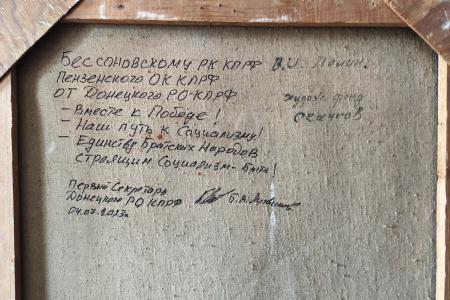 Бессоновскому РК КПРФ
Пензенского ОК КПРФ
от Донецкого РО КПРФ
– Вместе к Победе!
– Наш путь к Социализму!
– Единству Братских Народов
строящим Социализм – Быть!
Первый Секретарь
Донецкого РО КПРФ
04.07.2023г.
В.И. Ленин.
худож. фонд